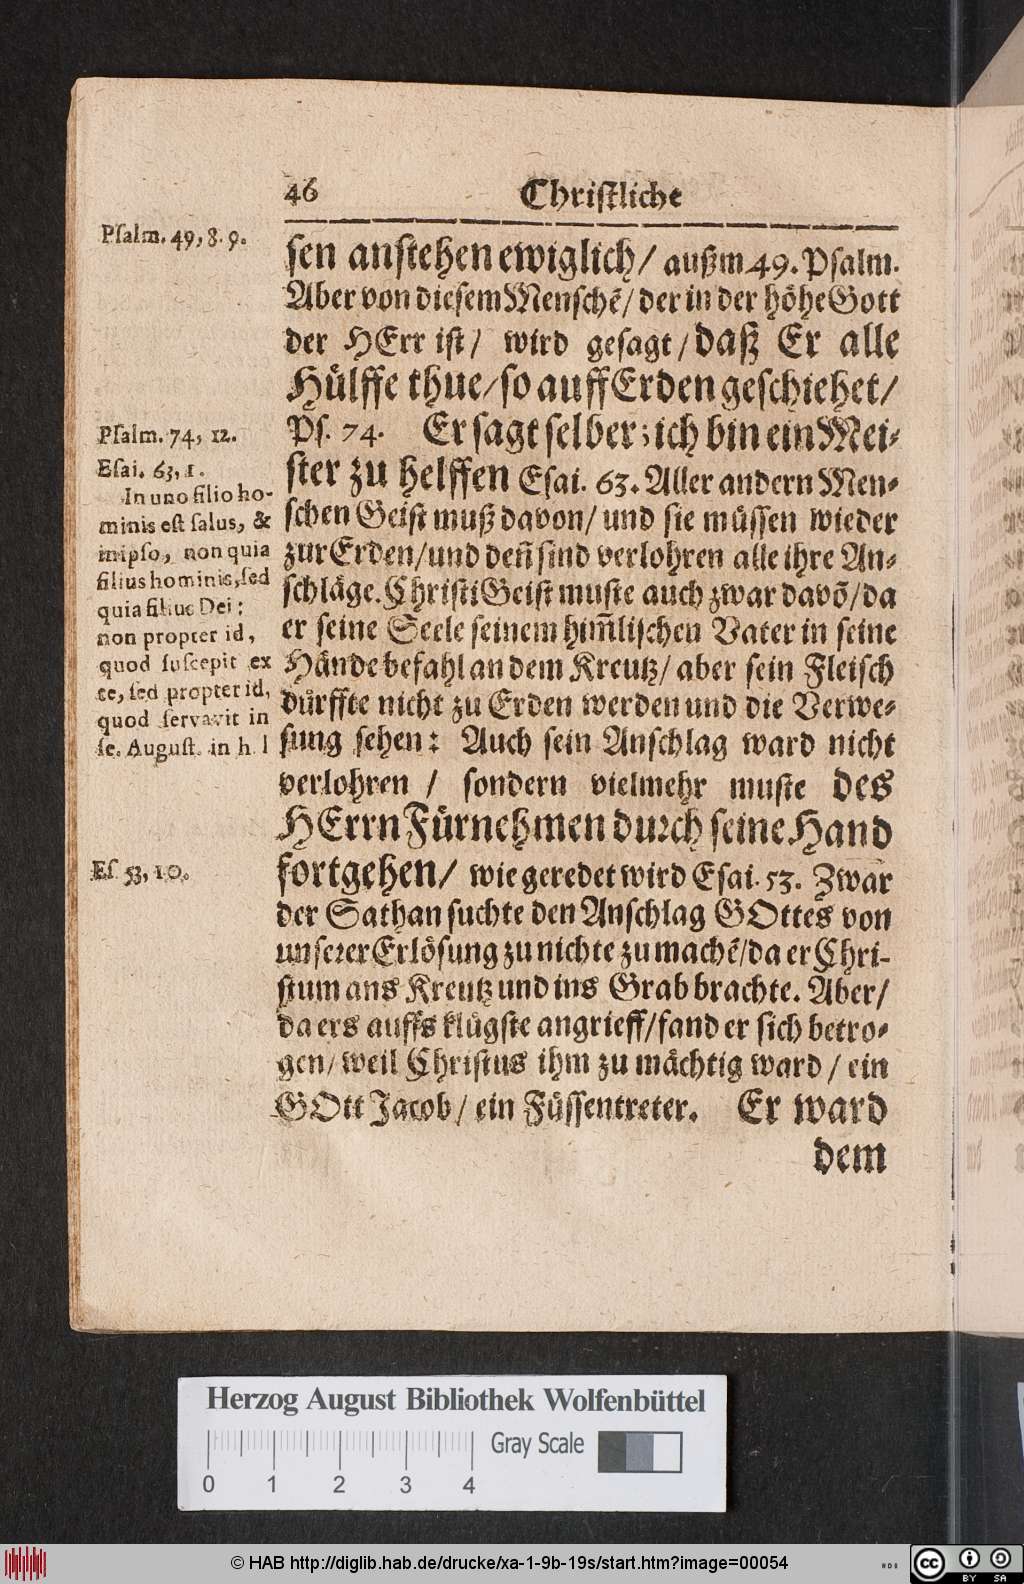 46 Christliche
Psalm. 49, 8. 9.
sen anstehen ewiglich / außm 49. Psalm.
Aber von diesem Menschẽ / der in der höhe Gott
der HErr ist / wird gesagt / daß Er alle
Hülffe thue / so auff Erden geschiehet /
Ps. 74. Er sagt selber; ich bin ein Mei-
ster zu helffen Esai. 63. Aller andern Men-
schen Geist muß davon / und sie müssen wieder
zur Erden / und deñ sind verlohren alle ihre An-
schläge. Christi Geist muste auch zwar davõ / da
er seine Seele seinem him̃lischen Vater in seine
Hände befahl an dem Kreutz / aber sein Fleisch
dürffte nicht zu Erden werden und die Verwe-
sung sehen: Auch sein Anschlag ward nicht
verlohren / sondern vielmehr muste des
HErrn Fürnehmen durch seine Hand
fortgehen / wie geredet wird Esai. 53. Zwar
der Sathan suchte den Anschlag GOttes von
unserer Erlösung zu nichte zu machẽ / da er Chri-
stum ans Kreutz und ins Grab brachte. Aber /
da ers auffs klügste angrieff / fand er sich betro-
gen / weil Christus ihm zu mächtig ward / ein
GOtt Jacob / ein Füssentreter. Er ward
dem
Psalm. 74, 12.
Esai. 63, 1.
In uno filio ho-
minis est salus, &
in ipso, non quia
filius hominis, sed
quia filius Dei:
non propter id,
quod suscepit ex
te, sed propter id,
quod servavit in
se. August. in h. l
Es 53, 10.
Herzog August Bibliothek Wolfenbüttel
Gray Scale
0 1 2 3 4
© HAB http://diglib.hab.de/drucke/xa-1-9b-19s/start.htm?image=00054
cc BY SA